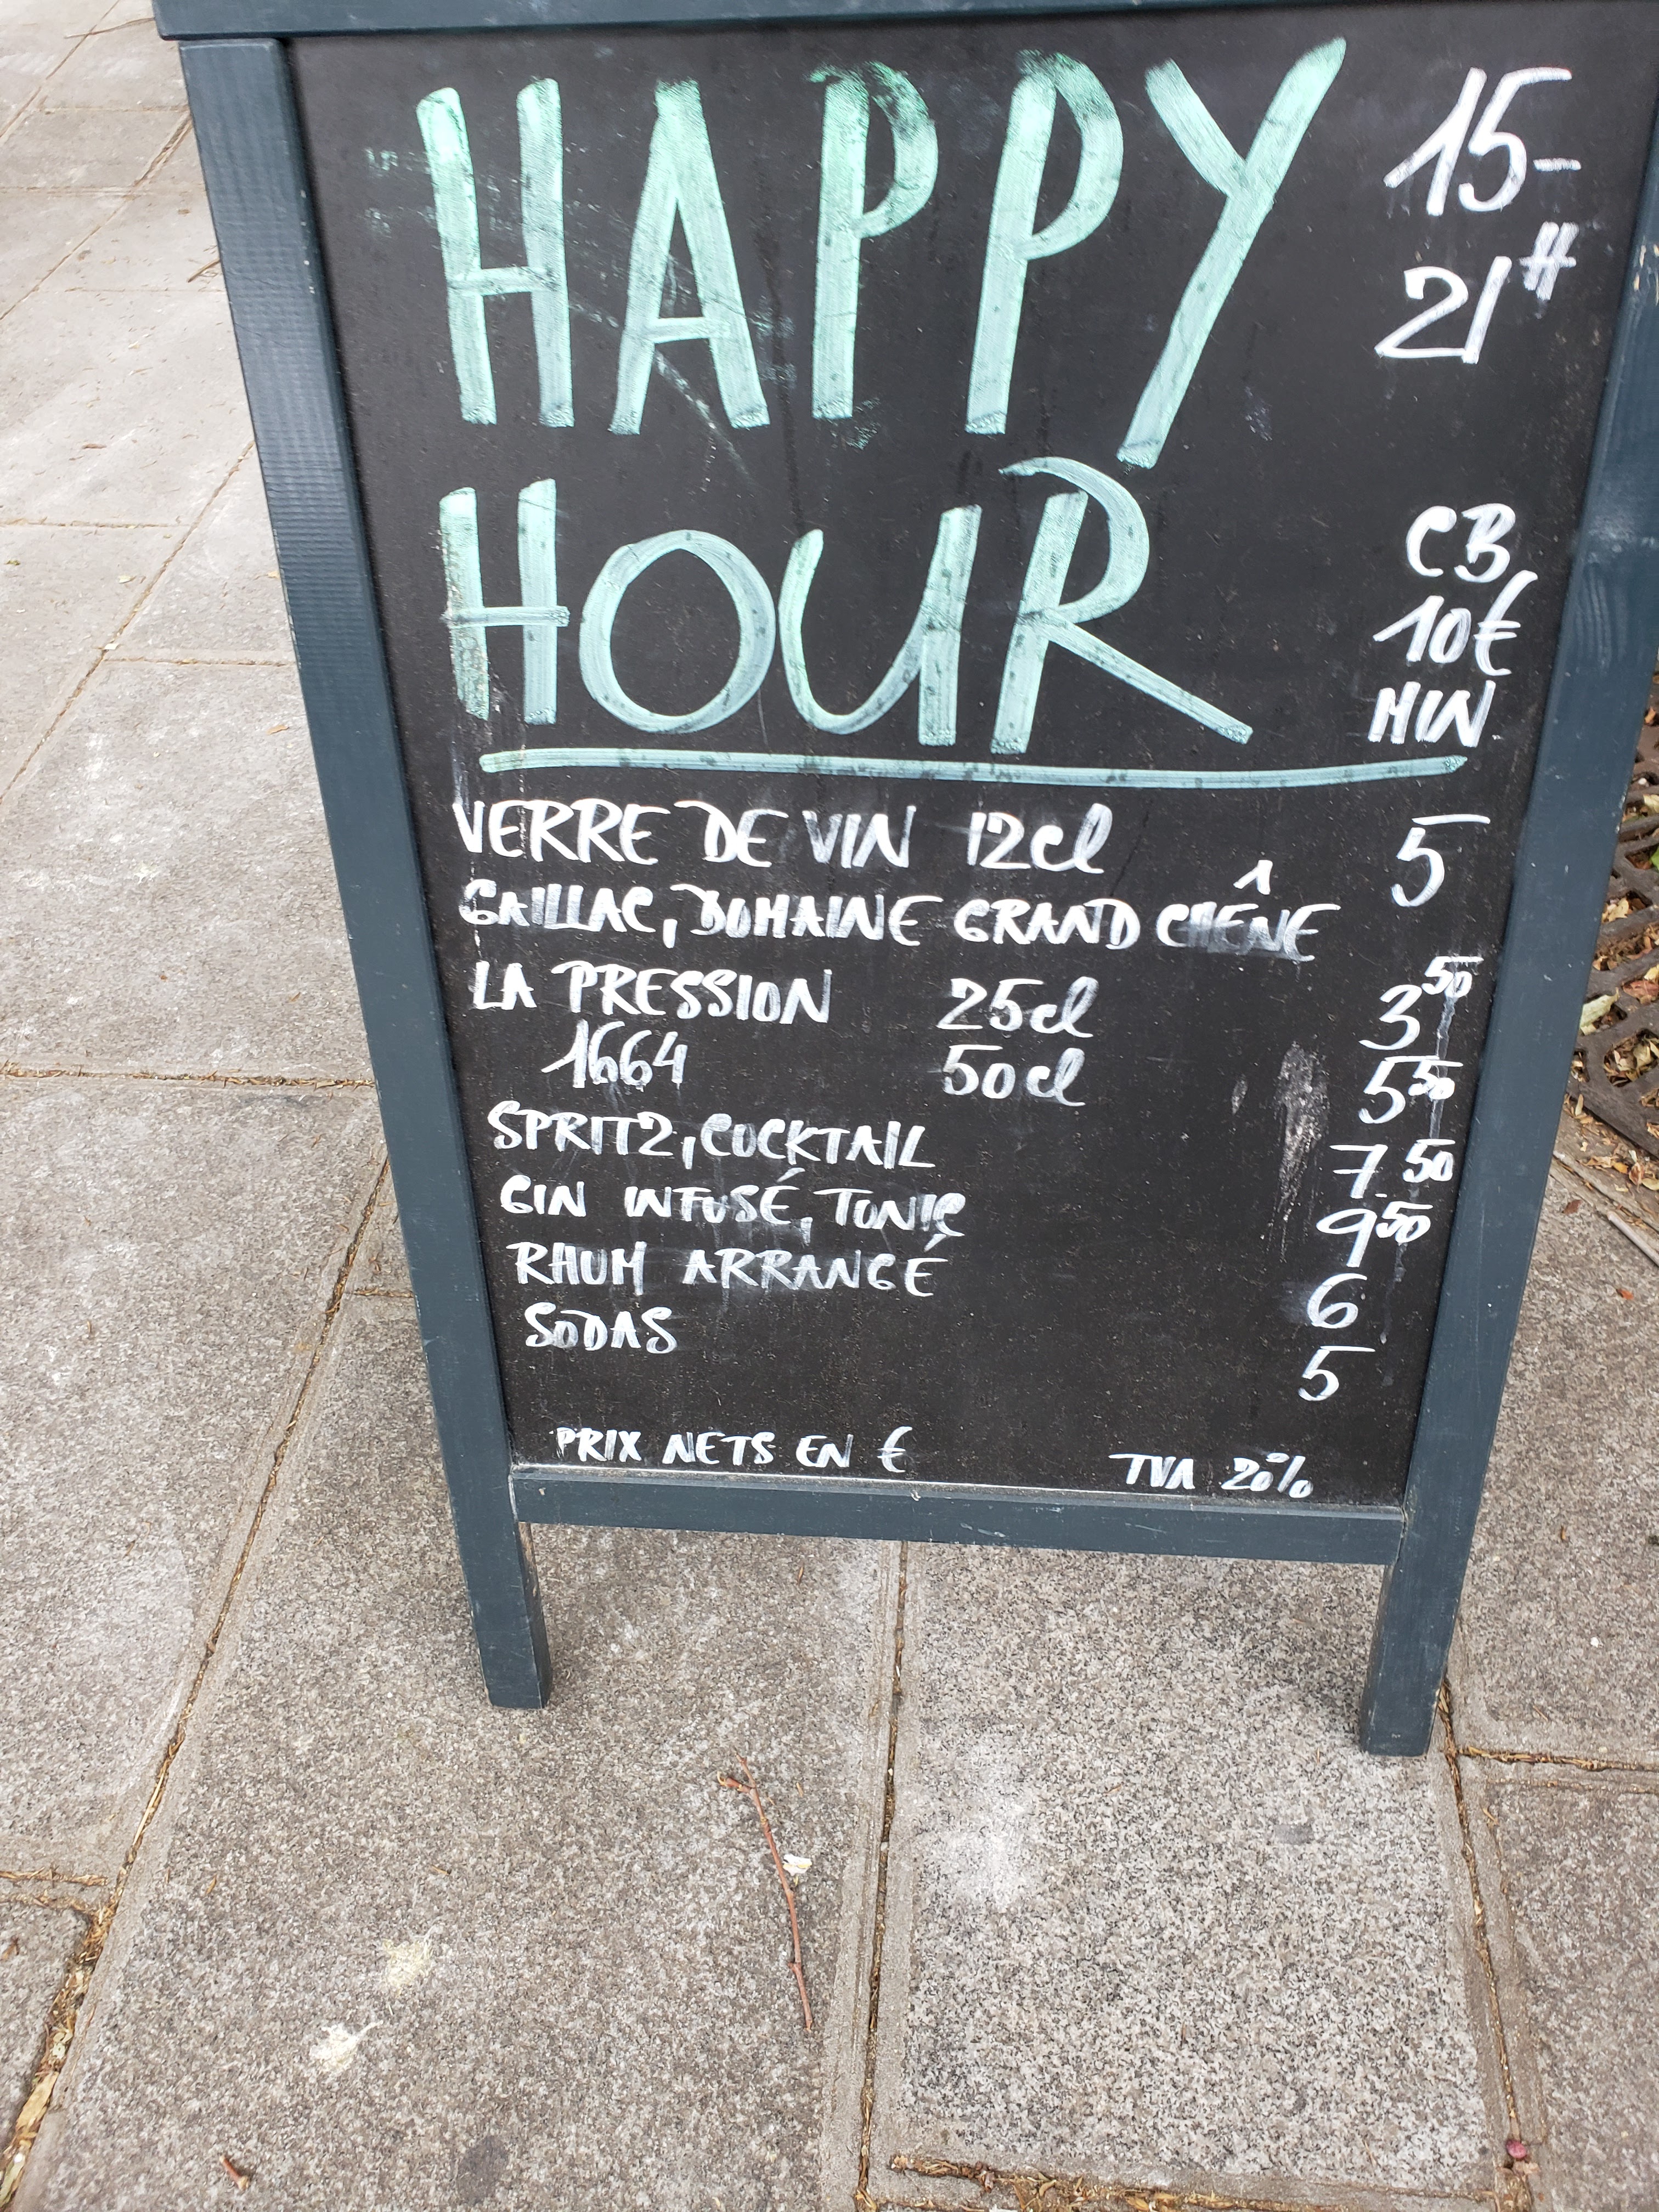 HAPPY 15-
21H
HOUR CB
10€
MIN
VERRE DE VIN 12cl 5
GAILLAC, DOMAINE GRAND CHÊNE
LA PRESSION 25cl 3 50
1664 50cl 5 50
SPRITZ, COCKTAIL 7 50
GIN INFUSÉ, TONIC 9 50
RHUM ARRANGÉ 6
SODAS 5
PRIX NETS EN € TVA 20%